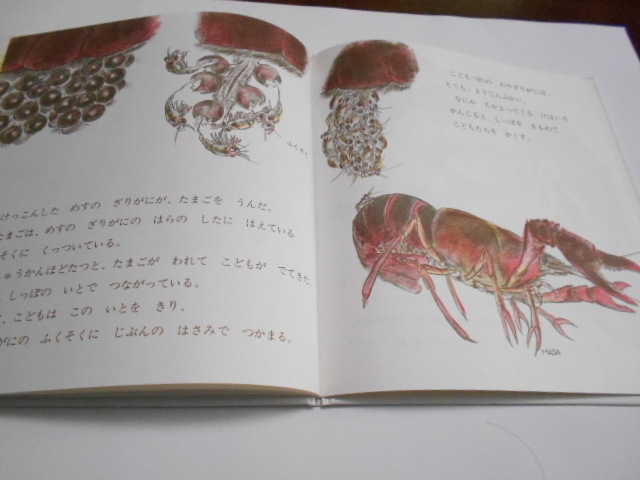 ふくそく
けっこんした めすの ざりがにが、たまごを うんだ。
たまごは、めすの ざりがにの はらの したに はえている
そくに くっついている。
しゅうかんほどたつと、たまごが われて こどもが でてきた。
しっぽの いとで つながっている。
こどもは この いとを きり、
がにの ふくそくに じぶんの はさみで つかまる。
こどもを もつ おやざりがには、
とても、ようじんぶかい。
なにか ちかよってくる けはいを
かんじると、しっぽを まるめて
こどもたちを かくす。
MASA